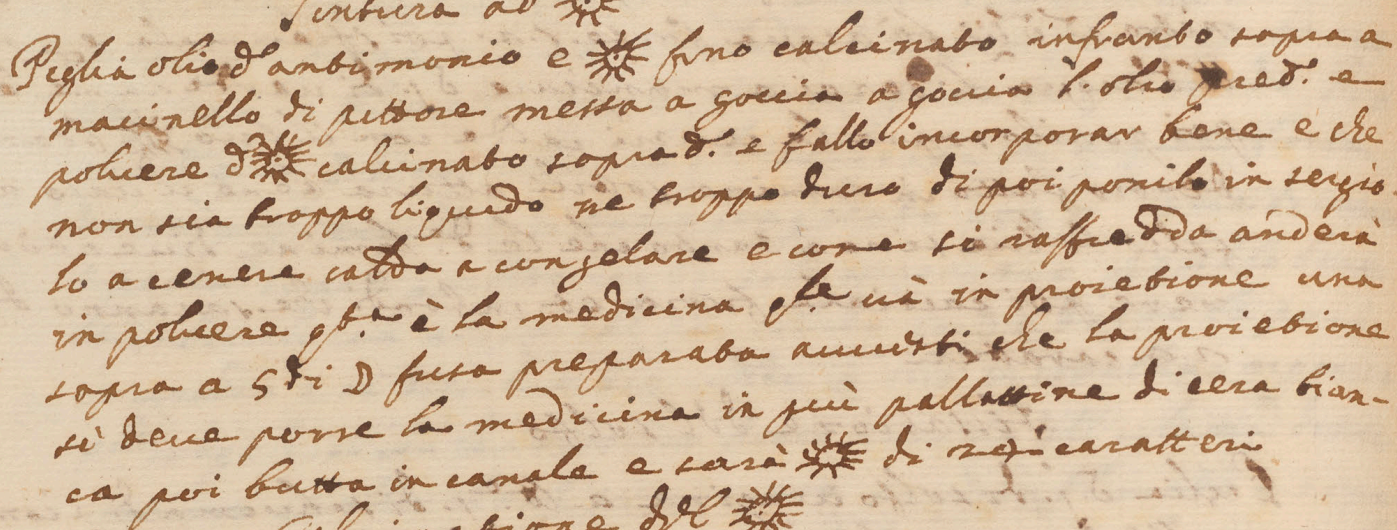 Tintura ad ☼
Peglia olio d'antimonio e ☼ fino calcinato infranto sopra a
macinello di pittore messa a goccia a goccia l'olio pred.º e
polvere d ☼ calcinato soprad.º e fallo incorporar bene e che
non sia troppo liquido ne troppo duro di poi ponilo in
lo a cenere calda a congelare e come si raffredda anderà
in polvere qt.ª è la medicina q.le và in proietione una
sopra a 5 di ☽ fusa preparata avverti che la proietione
si deve porre la medicina in più pallottine di cera bian-
ca poi butta in canale e sarà ☼ di caratteri
del ☼